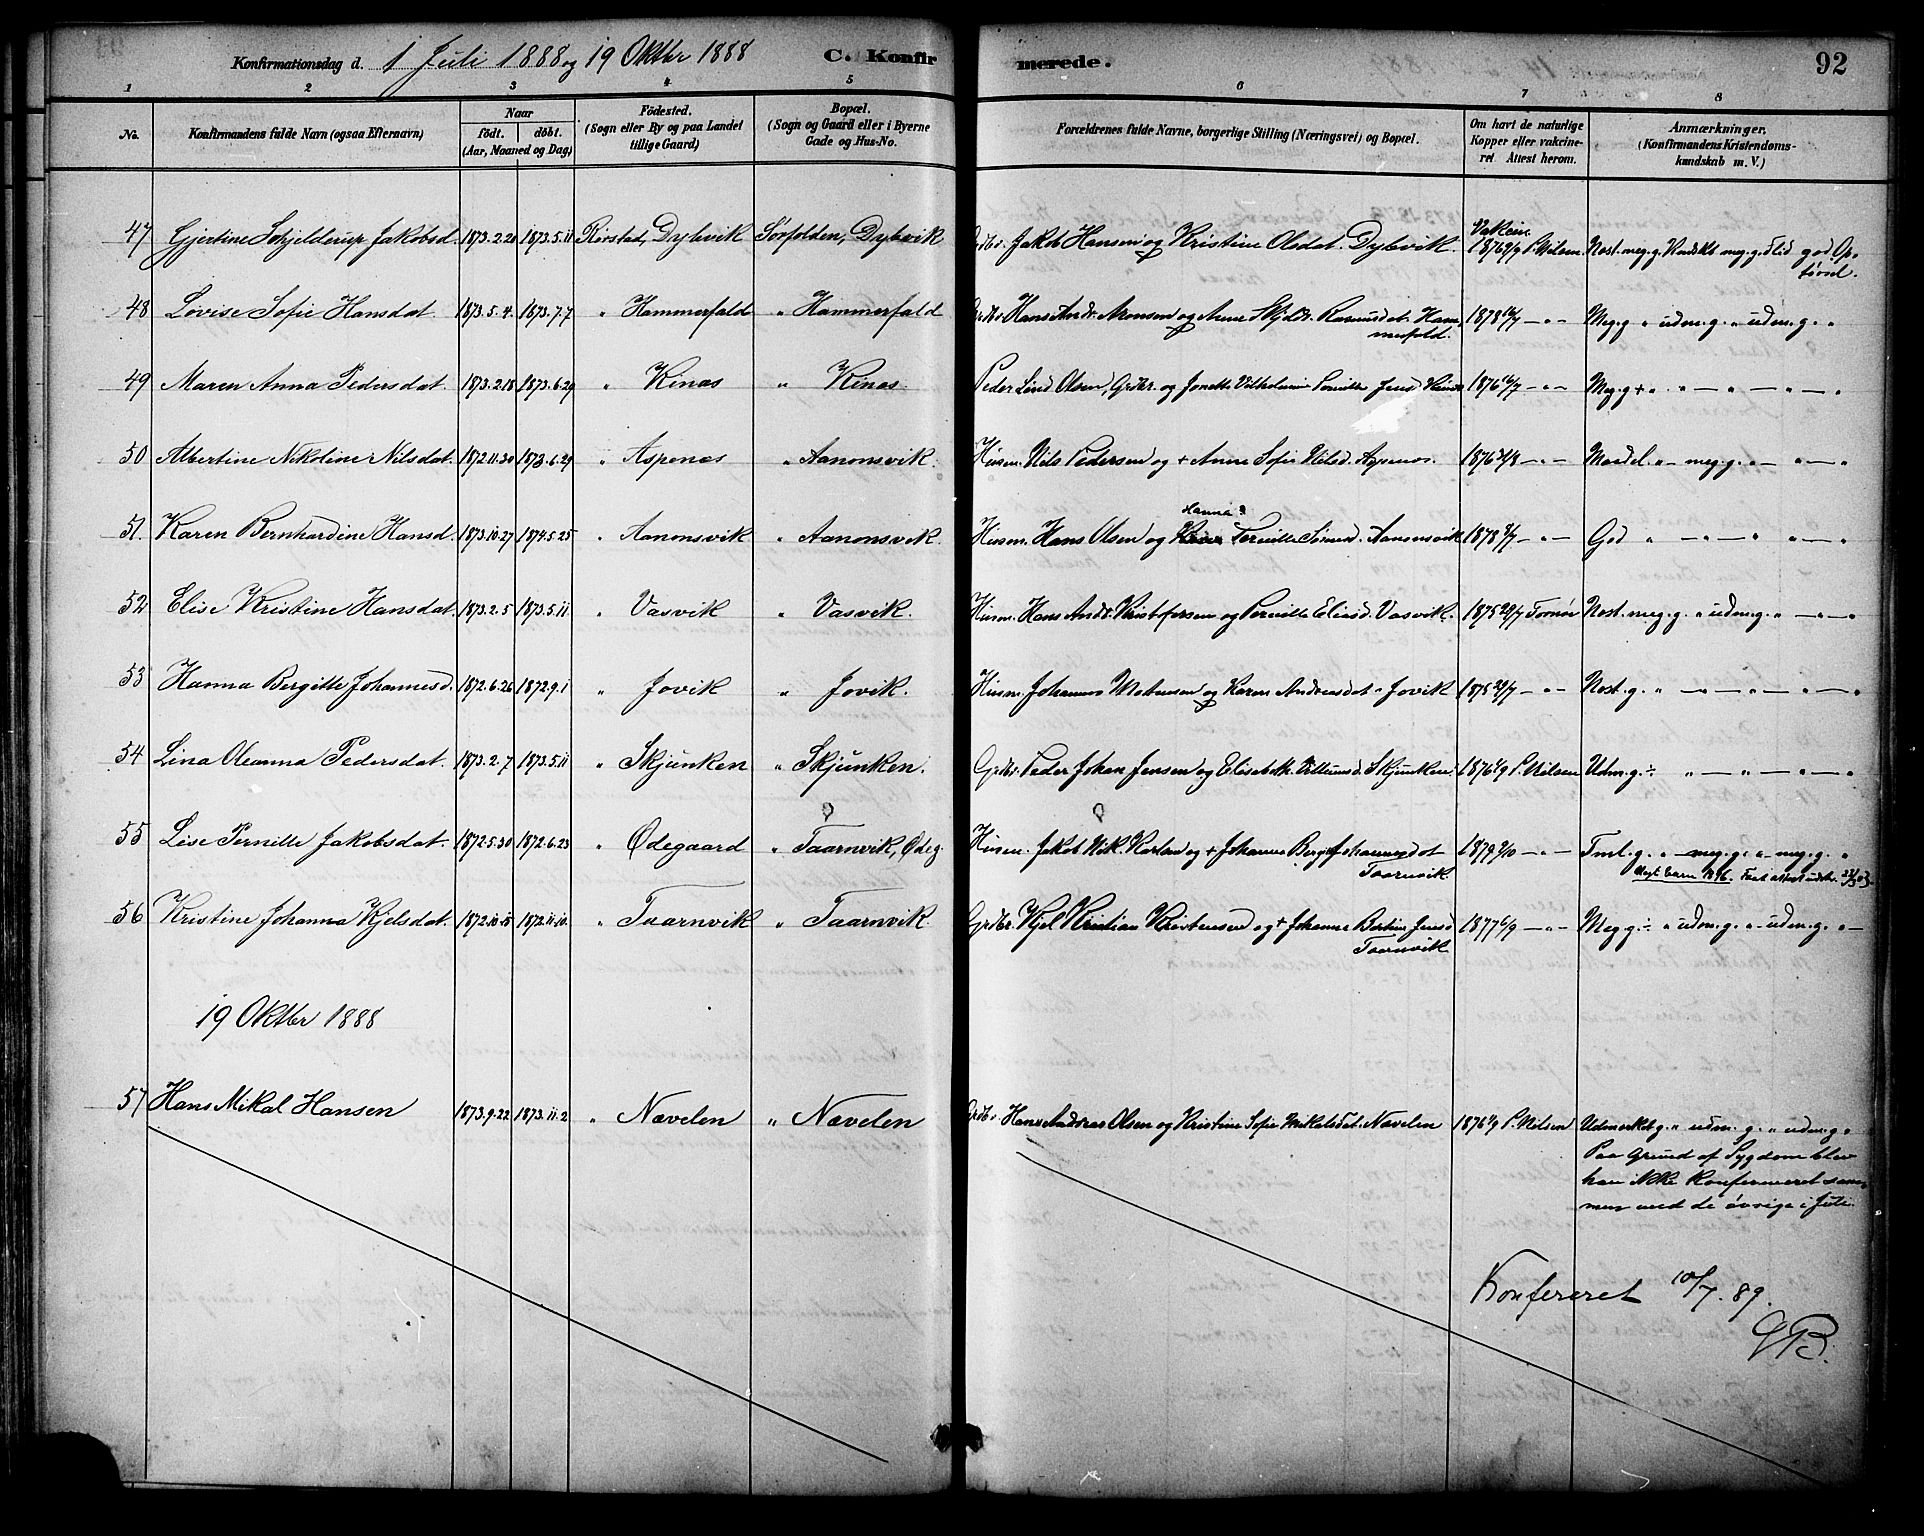 Konfirmationsdag d. 1 Juli 1888 og 19 Oktbr 1888 C. Konfirmerede. 92
1 2 3 4 5 6 7 8
No. Konfirmandens fulde Navn (ogsaa Efternavn) Naar födt. döbt. (Aar, Maaned og Dag) Födested. (Sogn eller By og paa Landet tillige Gaard) Bopæl. (Sogn og Gaard eller i Byerne Gade og Hus-No. Forældrenes fulde Navne, borgerlige Stilling (Næringsvei) og Bopæl. Om havt de naturlige Kopper eller vakcineret. Attest herom. Anmærkninger. (Konfirmandens Kristendomskundskab m. V.)
47 Gjertine Schjelderup Jakobsd. 1873.2.20 1873.5.11 Rörstad, Dybvik Sörfolden, Dybvik Grdbr. Jakob Hansen og Kristine Olsdat. Dybvik. Vakcin. 1876 6/9 P. Nilsen. Nost. meg. g. Kundskb meg. g. Flid god Opförsel.
48 Lovise Sofie Hansdat. 1873.5.4. 1873.7.7 " Hammerfald " Hammerfald Grdbr. Hans Andr. Aronsen og Anne Skjeldr. Rasmusdat. Hammerfald. 1878 16/7 — " — Meg. g " udm. g. " udm. g. "
49 Maren Anna Pedersdat. 1873.2.18 1873.6.29 " Kinæs " Kinæs Peder Lind Olsen, Grdbr. og Jonette Vilhelmine Pernille Jensd. Kinæs 1876 16/7 — " — Meg. g + " " — " — " — "
50 Albertine Nikoline Nilsdat. 1872.11.30 1873.6.29 " Aspenæs " Aanonsvik. Husm. Nils Pedersen og + Anne Sofie Nilsd. Aspenæs. 1876 21/8 — " — Maadel. " — meg. g. " — " — "
51. Karen Bernhardine Hansd. 1873.10.27 1874.5.25 " Aanonsvik " Aanonsvik. Husm. Hans Olsen og Hanna? Pernille Sörend. Aanonsvik 1878 9/7 — " — God " — " — " " — "
52 Elise Kristine Hansdat. 1873.2.5 1873.5.11 " Vasvik " Vasvik. Husm. Hans Andr. Kristofersen og Pernille Eliasd. Vasvik. 1875 29/7 Tornör Nost. meg. g. " udm. g. " — " — "
53 Hanna Bergitte Johannesd. 1872.6.26 1872.9.1 " Jovik " Jovik. Husm. Johannes Mortensen og Karen Andreasdat. Jovik 1875 29/7 — " — Nost. g. " — " — " — " — "
54 Lina Oleanna Pedersdat. 1873.2.7 1873.5.11 " Skjunken " Skjunken. Grdbr. Peder Johan Jensen og Elisabeth Villumsd. Skjunken. 1876 6/9 P. Nilsen Udm. g. ÷ " — " — " — "
55 Lise Pernille Jakobsdat. 1872.5.30 1872.6.23 " Ödegaard " Taarnvik, Ödeg. Husm. Jakob Nik. Karlsen og + Johanna Berg. Johannesdat Taarnvik. 1879 9/10 — " — Tml. g. " — meg. g. " — meg. g. "
56 Kristine Johanna Kjelsdat. 1872.10.15 1872.11.10. " Taarnvik " Taarnvik. Grdbr. Kjel Kristian Kristensen og + Johanna Bertine Jensd Taarnvik. 1877 6/9 — " — Meg. g ÷ " udm. g. " — udm. g. " —
19 Oktbr 1888
57 Hans Mikal Hansen 1873.9.22 1873.11.2 " Nævelen " Nævelen Grdbr. Hans Andreas Olsen og Kristine Sofie Mikalsdat. Nævelen 1876 6/9 P. Nilsen Udmerket g. " udm. g. " udm. g "
Paa Grund af Sygdom blev
han ikke konfirmeret sam-
men med de övrige i Juli.
Konfereret 10/7. 89.
GB.